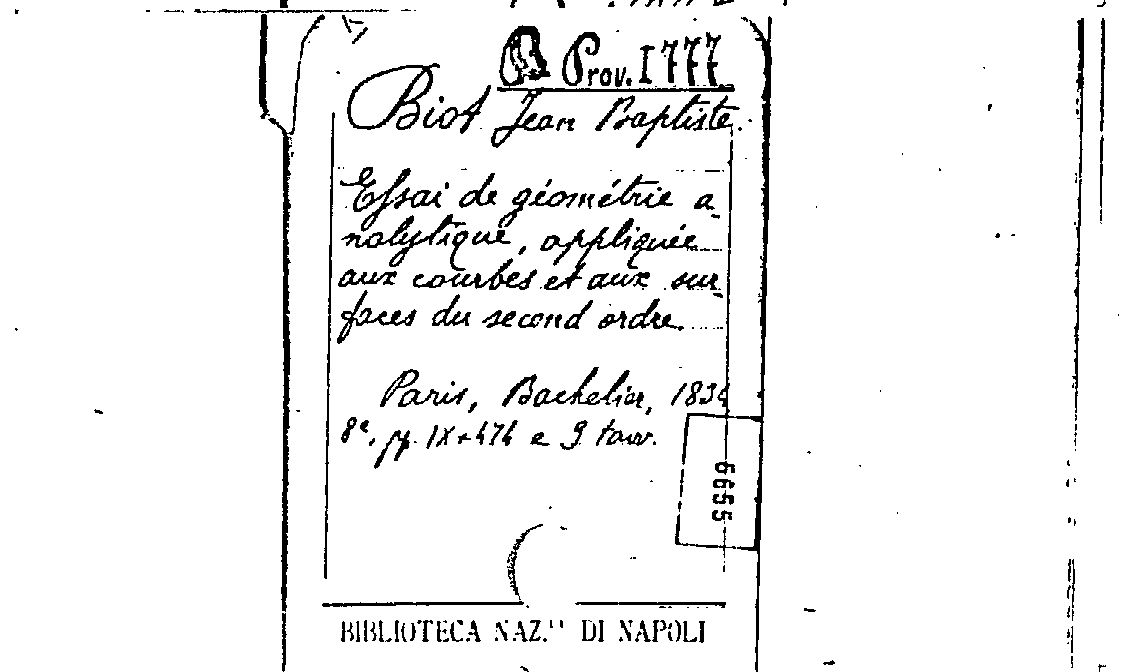 B Prov. I 777
Biot Jean Baptiste.
Essai de géométrie a-
nalytique, appliquée
aux courbes et aux sur-
faces du second ordre.
Paris, Bachelier, 1834
8°. pp. IX+474 e 9 tavv.
6655
BIBLIOTECA NAZ." DI NAPOLI